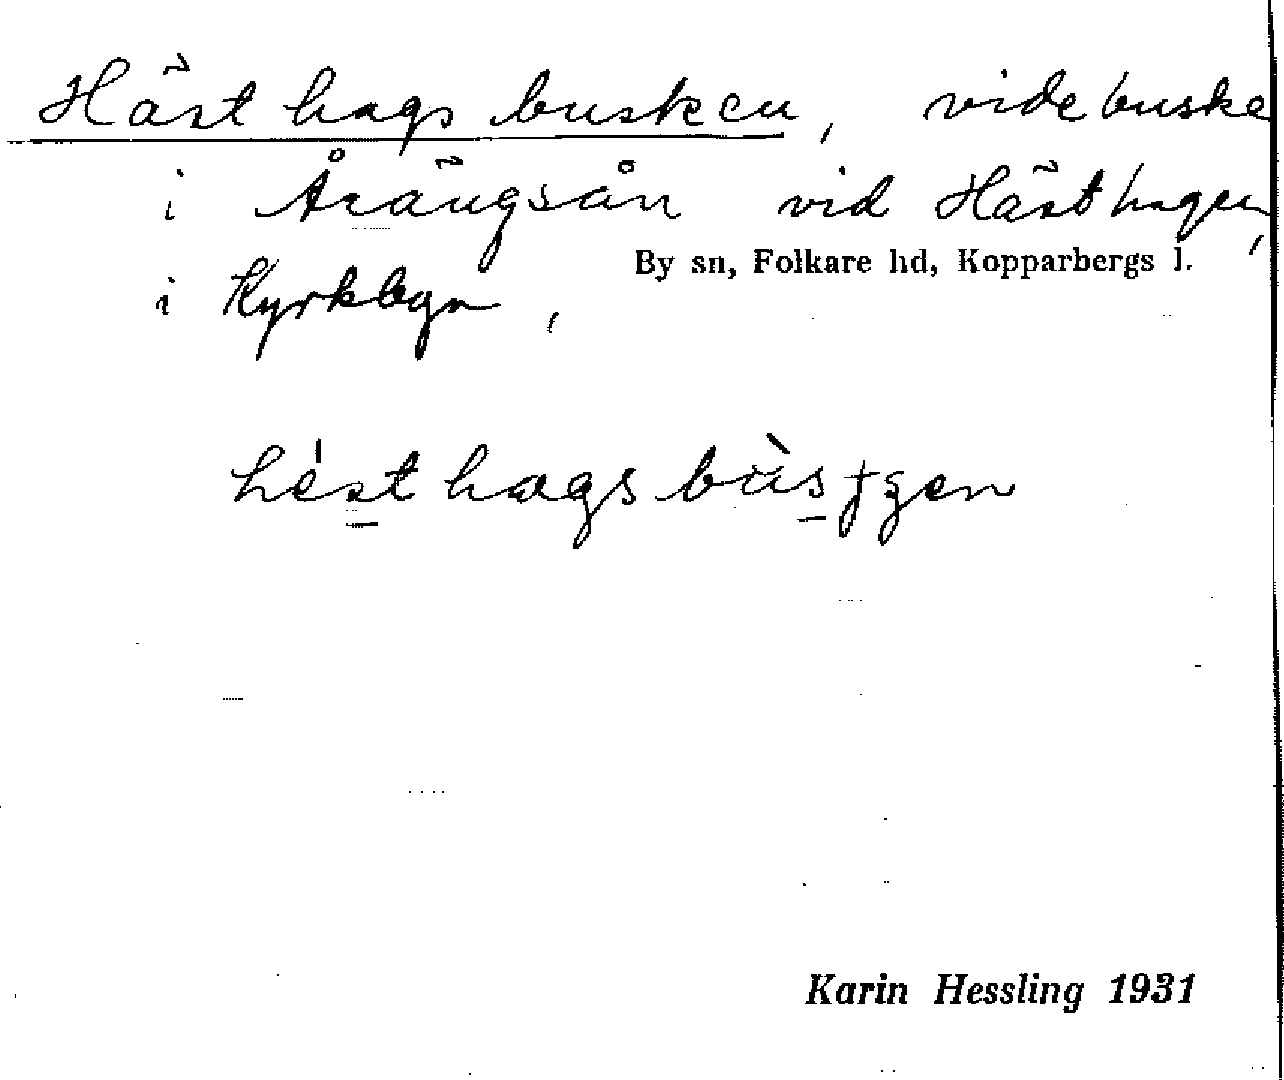 Hästhagsbusken, videbuske
i Årängsån vid Hästhagen,
By sn, Folkare hd, Kopparbergs l.
i Kyrkbyn,
hést hags bùs
Karin Hessling 1931